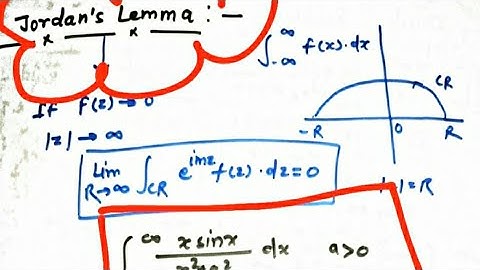 Jordan's Lemma : —
∫_{-∞}^{∞} f(x)·dx
If f(z) → 0
|z| → ∞
CR
-R 0 R
Lim_{R→∞} ∫_{CR} e^{imz} f(z)·dz = 0
|=R
∫^{∞} x sinx / x²+a² dx a>0